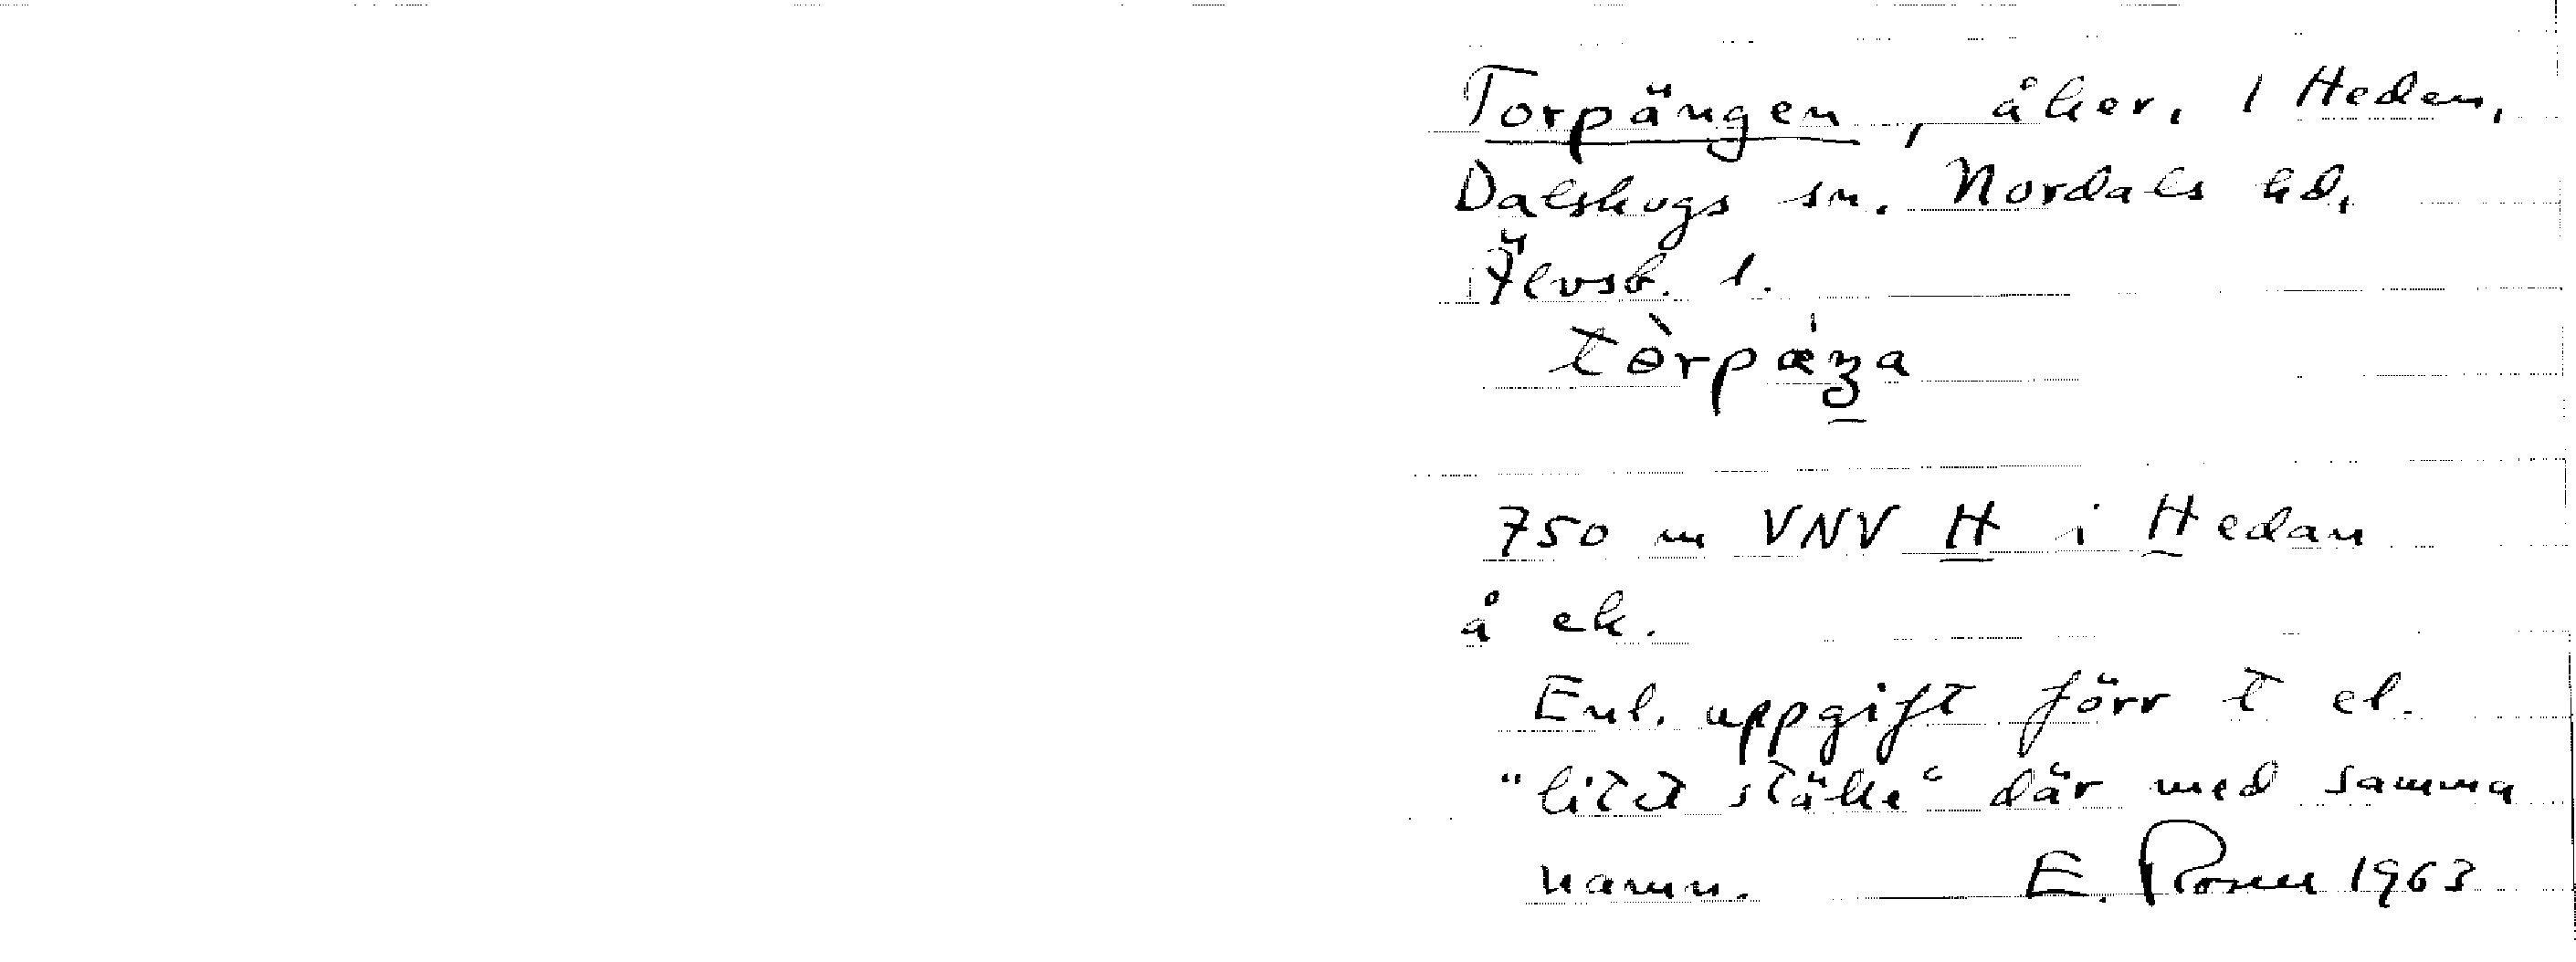 Torpängen, åker, 1 Hedan,
Dalskogs sn. Nordals hd,
Älvsb. l.
750 m VNV H i Hedan
å ek.
Enl. uppgift förr t el.
"litet ställe" där med samma
namn. E. 1963